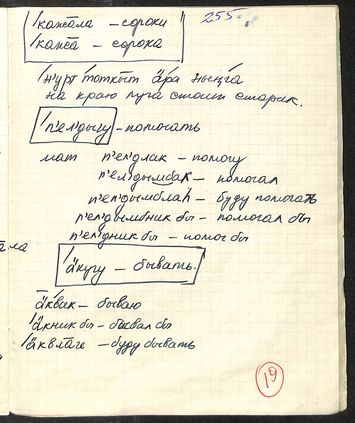 255.
/кажала – сороки
/кажа̄ – сорока
/н'урт /тоткыт ӓра ныңга
на краю луга стоит старик.
/п'ел'дыгу – помогать
мат п'ел'длак – помогу
п'ел'дымбак – помогал
п'ел'дымблаһ – буду помогать
п'ел'дымбник бы – помогал бы
п'ел'дник бы – помог бы
ла
/ӓкугу – бывать.
ӓквак – бываю
/ӓкник бы – бывал бы
/ӓквлӓге – буду бывать
19